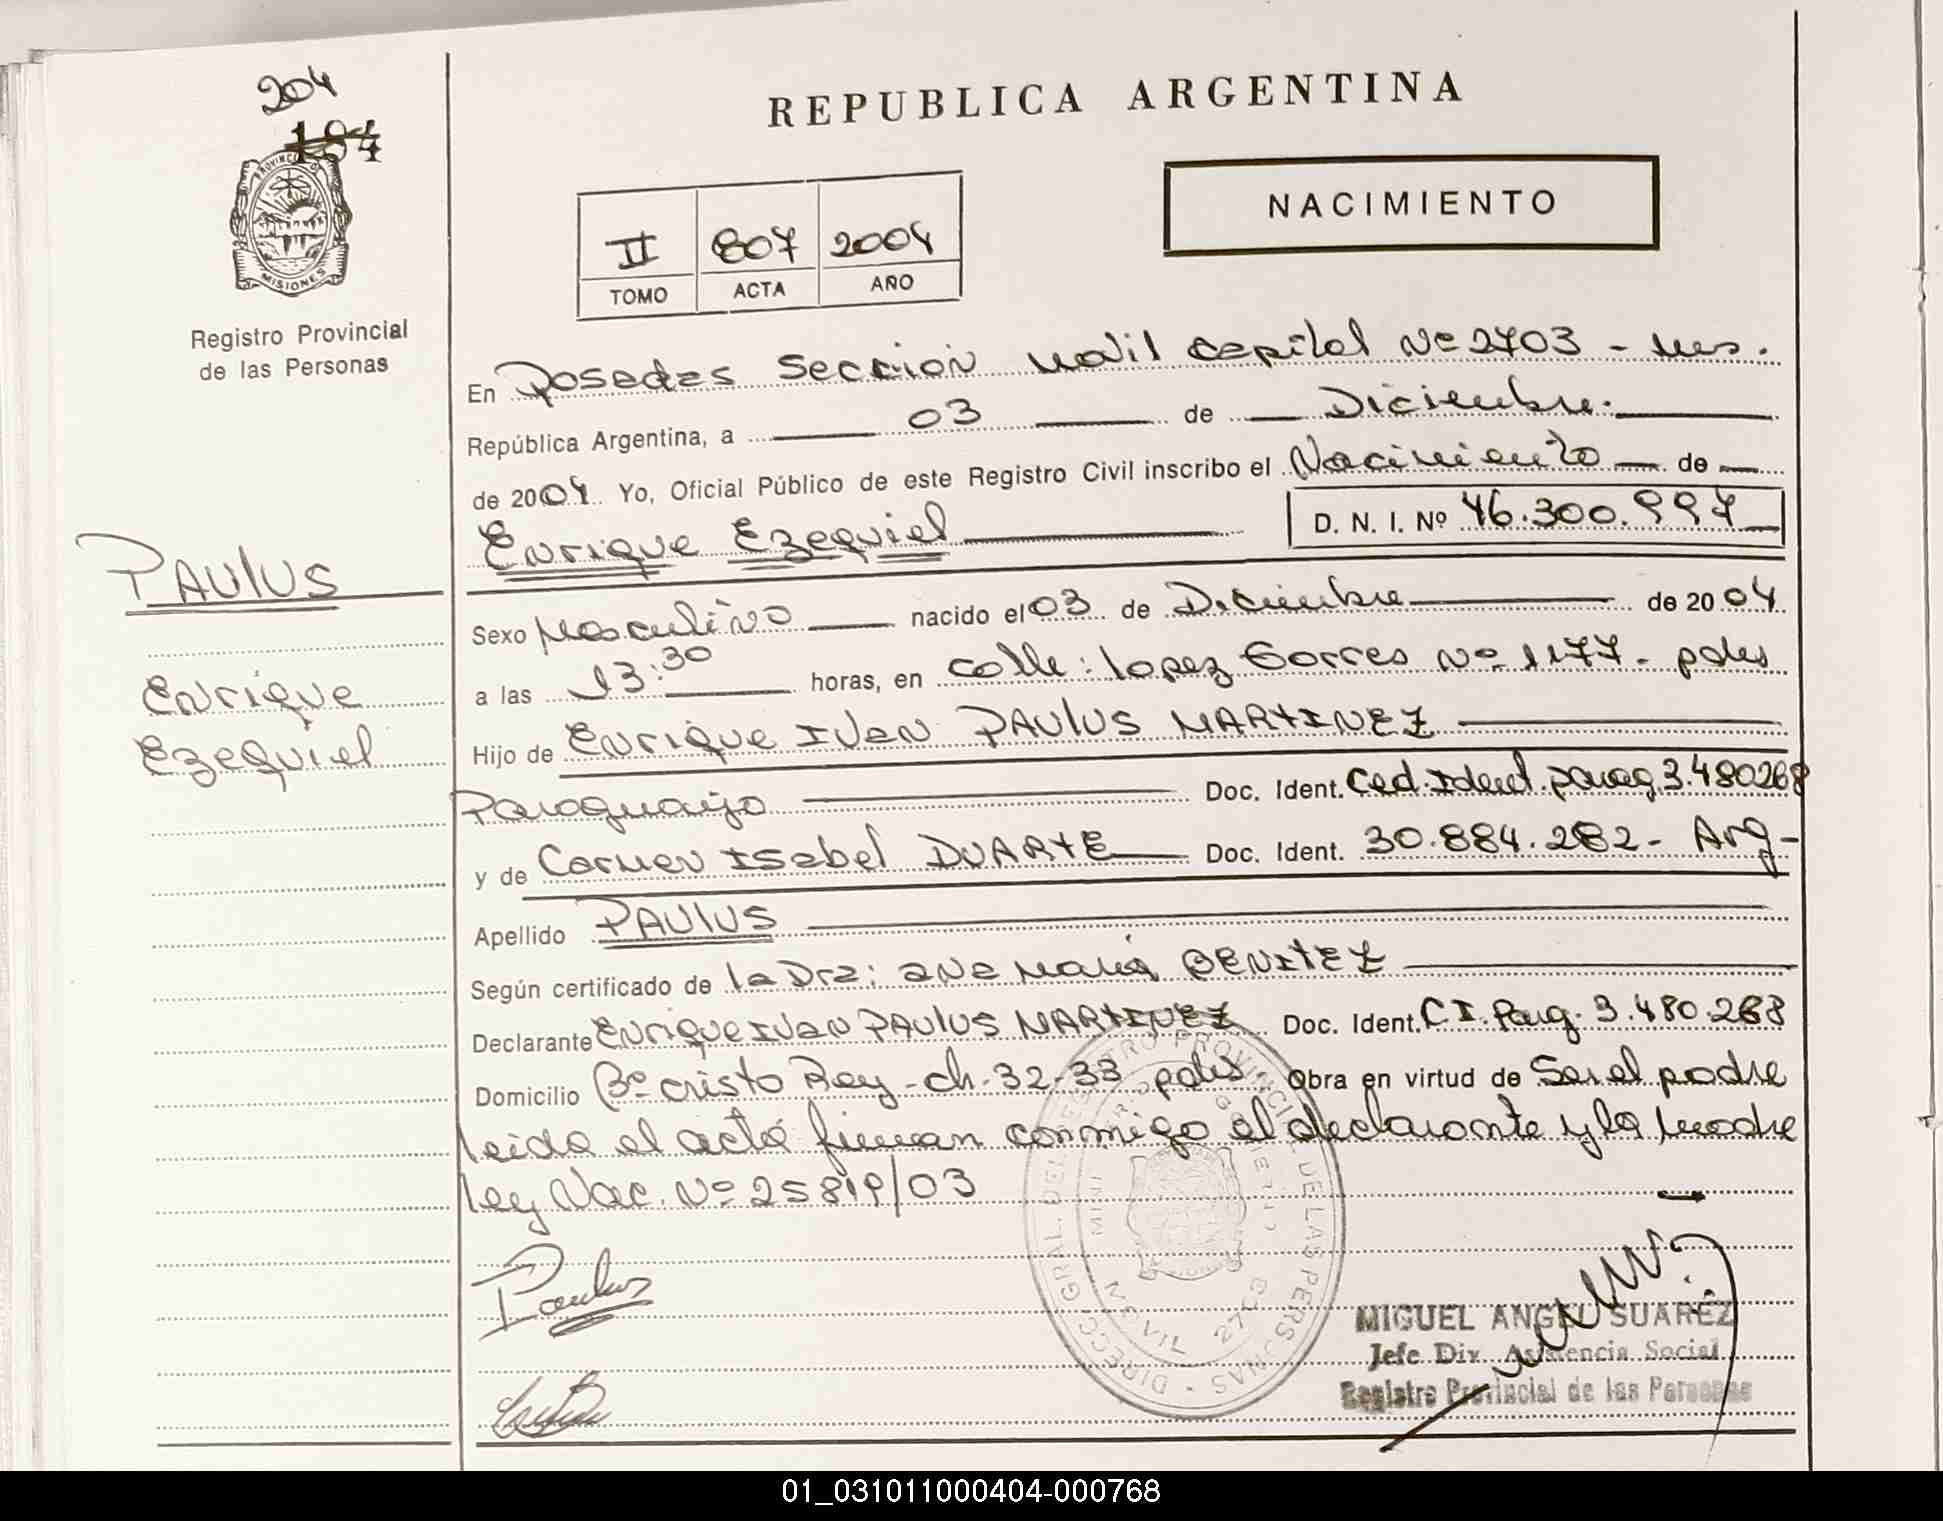 204
184
REPUBLICA ARGENTINA
PROVINCIA DE MISIONES
NACIMIENTO
II 807 2004
TOMO ACTA AÑO
Registro Provincial
de las Personas
En Posadas Sección Movil Capital Nº 2703 - Mes.
República Argentina, a 03 de Diciembre.
de 2004 Yo, Oficial Público de este Registro Civil inscribo el Nacimiento de
Enrique Ezequiel D. N. I. Nº 46.300.997
PAULUS
Sexo Masculino nacido el 03 de Diciembre de 2004
a las 13:30 horas, en calle: Lopez Torres Nº 1177 - pdas
Enrique
Hijo de Enrique Ivan PAULUS MARTINEZ
Ezequiel
Paraguayo Doc. Ident. Ced. Ident. parag. 3.480268
y de Carmen Isabel DUARTE Doc. Ident. 30.884.282 - Arg -
Apellido PAULUS
Según certificado de la Dra: Ana María BENITEZ
Declarante Enrique Ivan PAULUS MARTINEZ Doc. Ident. CI. Parg. 3.480.268
Domicilio Bº Cristo Rey - ch. 32-33 pdas. Obra en virtud de Ser el padre
leida el acta firman conmigo el declarante y la madre
ley Nac. Nº 25819/03
DIRECC. GRAL. DEL REGISTRO PROVINCIAL DE LAS PERSONAS
2703
Paulus
MIGUEL ANGEL SUAREZ
Jefe Div. Asistencia Social
Registro Provincial de las Personas
01_031011000404-000768